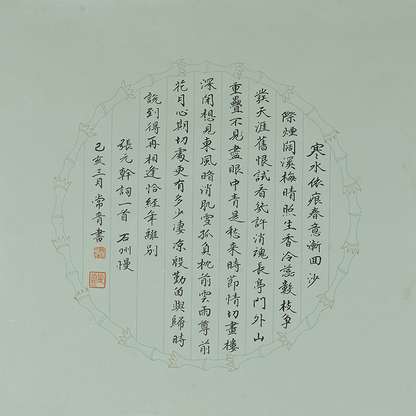 寒水依痕春意漸回沙
際煙闊溪梅晴照生香冷蕊數枝爭
發天涯舊恨試看幾許消魂長亭門外山
重疊不見盡眼中青是愁來時節情切畫樓
深閉想見東風暗消肌雪孤負枕前雲雨尊前
花月心期切處更有多少凄涼殷勤留與歸時
說到得再相逢恰經年離別
張元幹詞一首 石州慢
己亥三月常青書